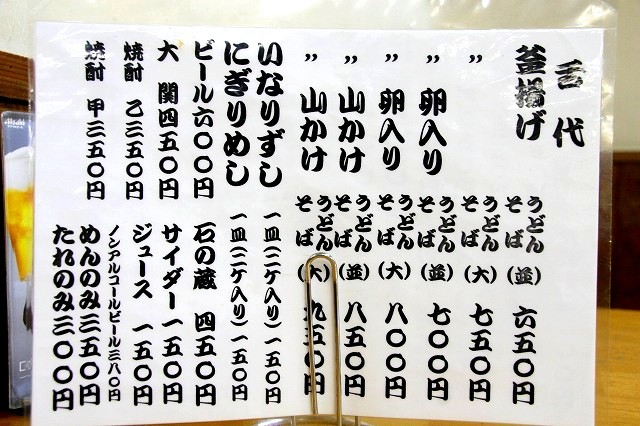 舌代
釜揚げ うどんそば (並) 六五〇円
〃 うどんそば (大) 七五〇円
〃 卵入り うどんそば (並) 七〇〇円
〃 卵入り うどんそば (大) 八〇〇円
〃 山かけ うどんそば (並) 八五〇円
〃 山かけ うどんそば (大) 九五〇円
いなりずし 一皿(二ケ入り) 一五〇円
にぎりめし 一皿(二ケ入り) 一五〇円
ビール 六〇〇円 石の蔵 四五〇円
大関 四五〇円 サイダー 一五〇円
焼酎 乙 三五〇円 ジュース 一五〇円
ノンアルコールビール 三八〇円
焼酎 甲 三五〇円 めんのみ 三五〇円
たれのみ 三〇〇円